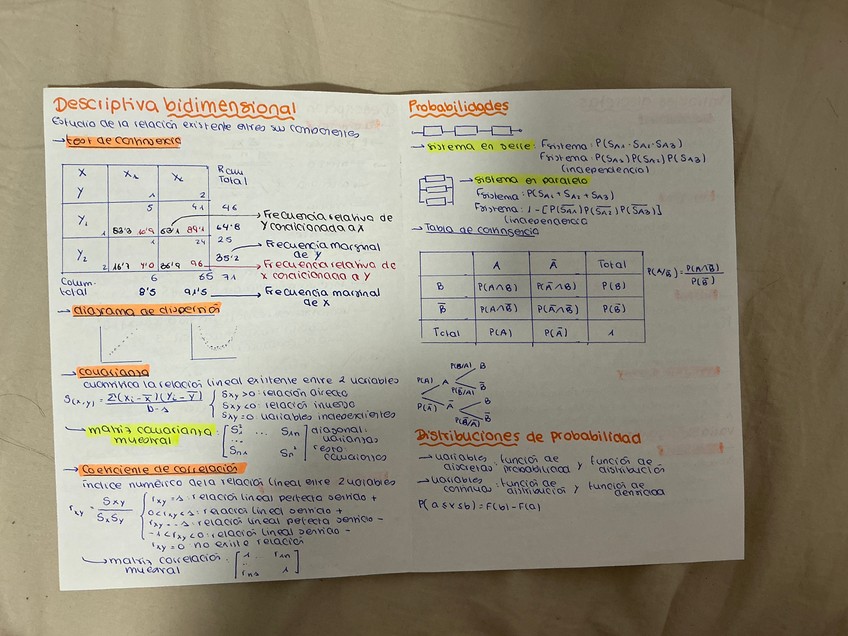 Descriptiva bidimensional
Estudio de la relación existente entres sus componentes
→ test de contingencia
X X₁ X₂ Row Total
Y 1 2
5 41 46
Y₁ 1 83'3 10'9 63'1 89'1 64'8
1 24 25
Y₂ 2 16'7 4'0 36'9 96 35'2
Column total 6 65 71
8'5 91'5
→ Frecuencia relativa de Y condicionada a X
→ Frecuencia marginal de Y
→ Frecuencia relativa de X condicionada a Y
→ Frecuencia marginal de X
→ diagrama de dispersión
→ covarianza
cuantifica la relación lineal existente entre 2 variables
S(x,y) = Σ(xᵢ-x̄)(yᵢ-ȳ) / n-1
Sxy>0: relación directa
Sxy<0: relación inversa
Sxy=0: variables independientes
→ matriz covarianza muestral: [S₁² ... S₁n ... Sn₁ Sn²] diagonal: varianzas resto: covarianzas
→ Coeficiente de correlación
índice numérico de la relación lineal entre 2 variables
rxy = Sxy / SxSy
rxy=1: relación lineal perfecta sentido +
0<rxy<1: relación lineal sentido +
rxy=-1: relación lineal perfecta sentido -
-1<rxy<0: relación lineal sentido -
rxy=0 no existe relación
→ matriz correlación muestral: [1 ... r1n ... rn1 1]
Probabilidades
→ sistema en serie: Fsistema: P(SA1·SA2·SA3)
Fsistema: P(SA1)P(SA2)P(SA3)
(independencia)
→ sistema en paralelo
Fsistema: P(SA1+SA2+SA3)
Fsistema: 1-[P(S̅A̅1̅)P(S̅A̅2̅)P(S̅A̅3̅)]
(independencia)
→ Tabla de contingencia
A Ā Total
B P(A∩B) P(Ā∩B) P(B)
B̄ P(A∩B̄) P(Ā∩B̄) P(B̄)
Total P(A) P(Ā) 1
P(A/B̄) = P(A∩B̄) / P(B̄)
P(B/A) B
P(A) A
P(B̄/A) B̄
P(Ā) Ā B
P(B̄/Ā) B̄
Distribuciones de probabilidad
→ variables discretas: función de probabilidad y función de distribución
→ variables continuas: función de distribución y función de densidad
P(a≤x≤b)=F(b)-F(a)